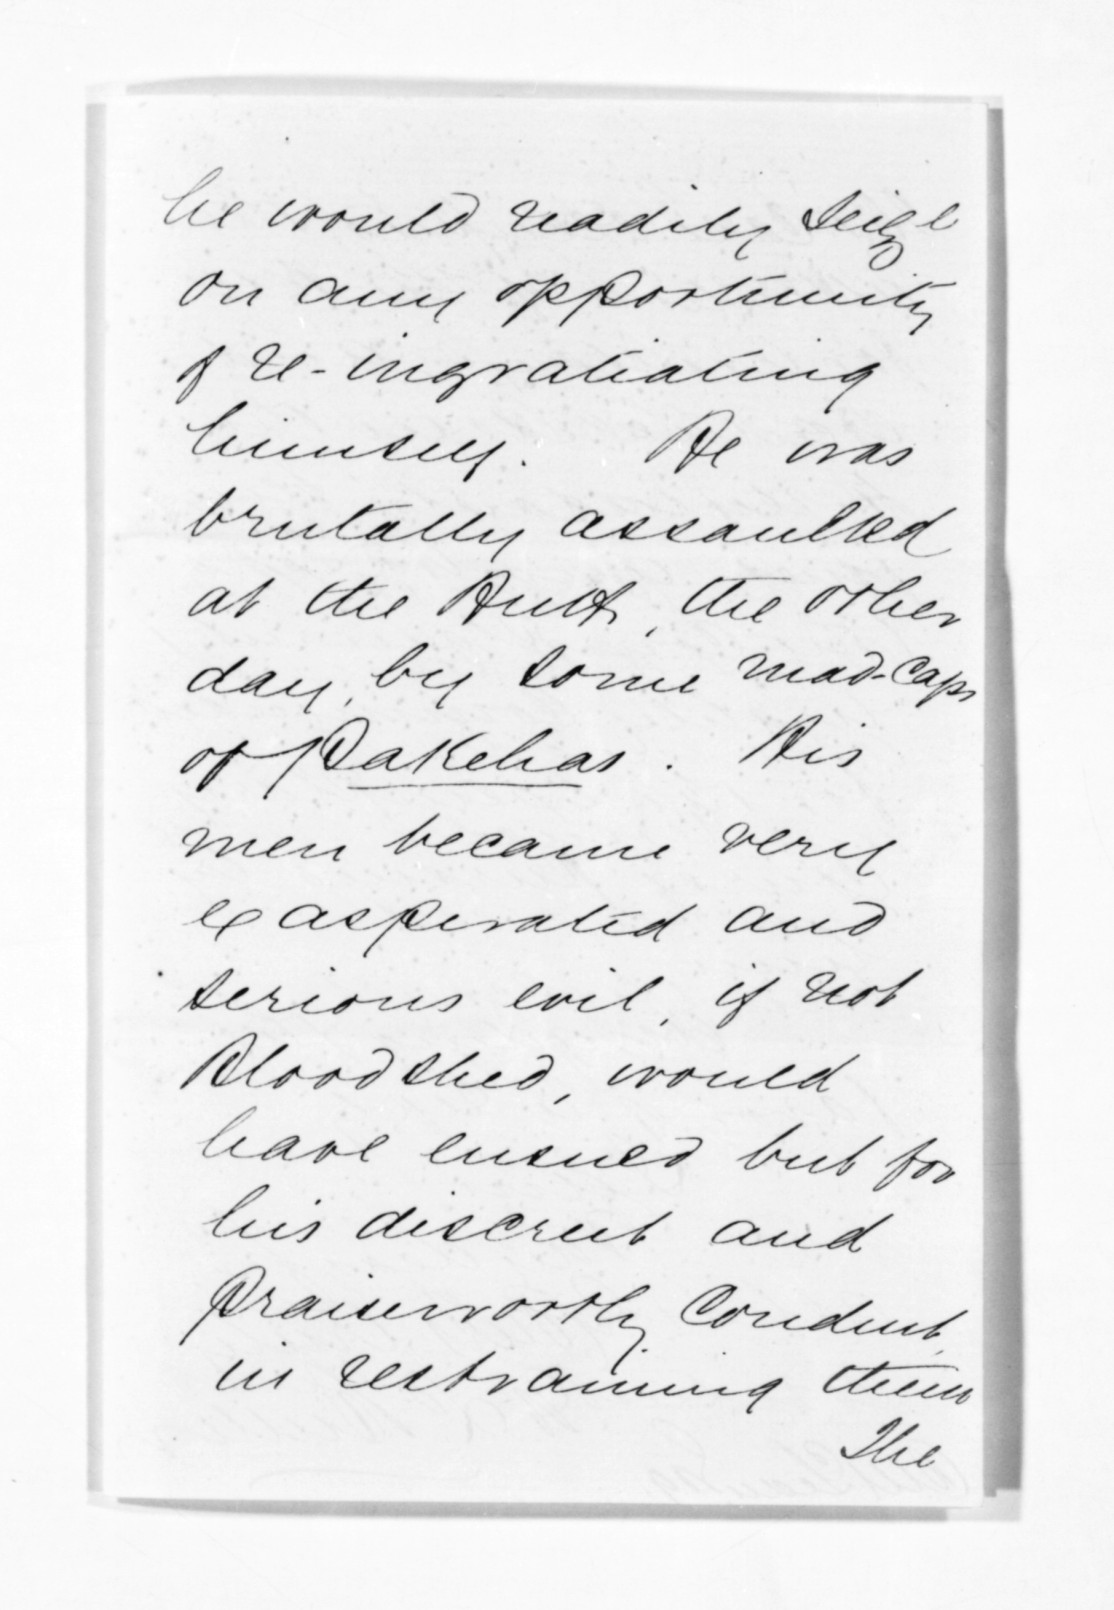 he would readily seize
on any opportunity
of re-ingratiating
himself. He was
brutally assaulted
at the Hutt, the other
day, by some mad-caps
of Pakehas. His
men became very
exasperated and
serious evil, if not
Bloodshed, would
have ensued but for
his discreet and
praiseworthy conduct
in restraining them
The